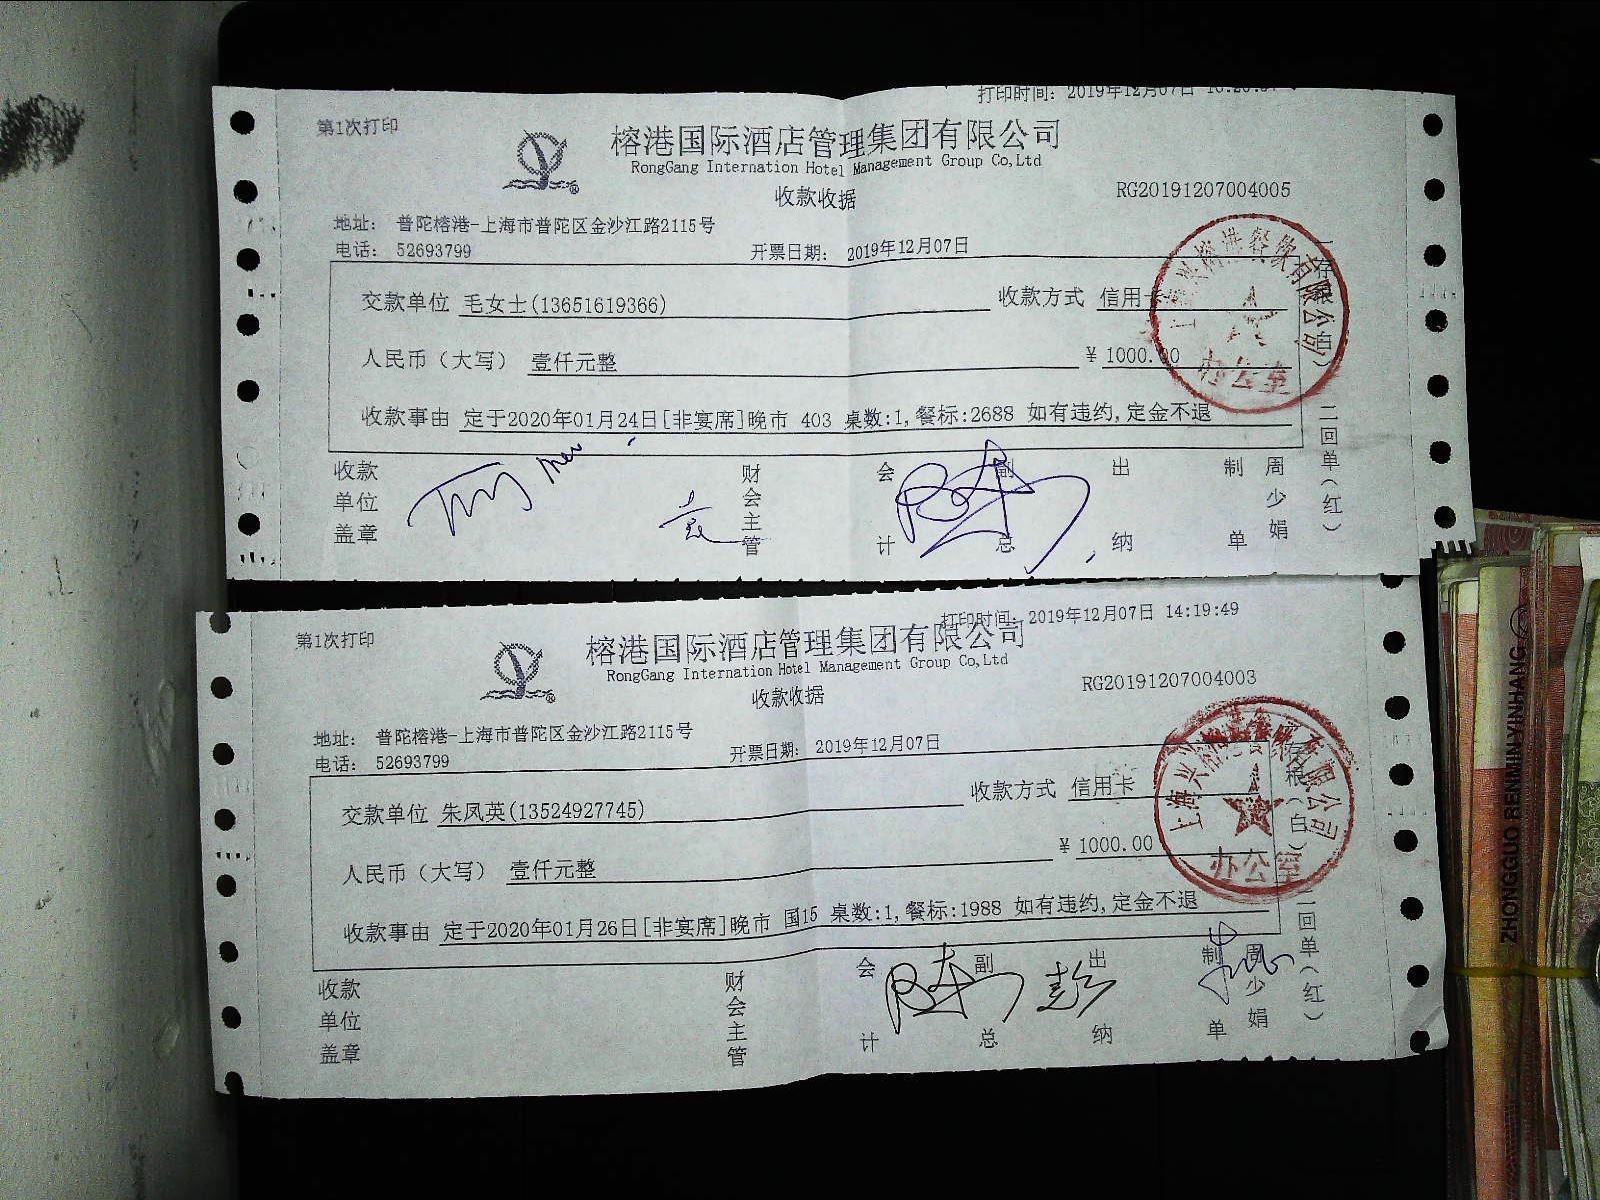 打印时间: 2019年12月07日
第1次打印
榕港国际酒店管理集团有限公司
RongGang Internation Hotel Management Group Co,Ltd
收款收据
RG20191207004005
地址: 普陀榕港-上海市普陀区金沙江路2115号
电话: 52693799
开票日期: 2019年12月07日
交款单位 毛女士(13651619366) 收款方式 信用卡
人民币(大写) 壹仟元整 ¥ 1000.00
收款事由 定于2020年01月24日[非宴席]晚市 403 桌数:1,餐标:2688 如有违约,定金不退
收款单位盖章 财会主管 会计 副总 出纳 制单 周少娟
一存根(白)
二回单(红)
兴榕港餐饮有限公司
办公室
打印时间: 2019年12月07日 14:19:49
第1次打印
榕港国际酒店管理集团有限公司
RongGang Internation Hotel Management Group Co,Ltd
收款收据
RG20191207004003
地址: 普陀榕港-上海市普陀区金沙江路2115号
电话: 52693799
开票日期: 2019年12月07日
交款单位 朱凤英(13524927745) 收款方式 信用卡
人民币(大写) 壹仟元整 ¥ 1000.00
收款事由 定于2020年01月26日[非宴席]晚市 国15 桌数:1,餐标:1988 如有违约,定金不退
收款单位盖章 财会主管 会计 副总 出纳 制单 周少娟
存根(白)
二回单(红)
上海兴榕港餐饮有限公司
办公室
ZHONGGUO RENMIN YINHANG